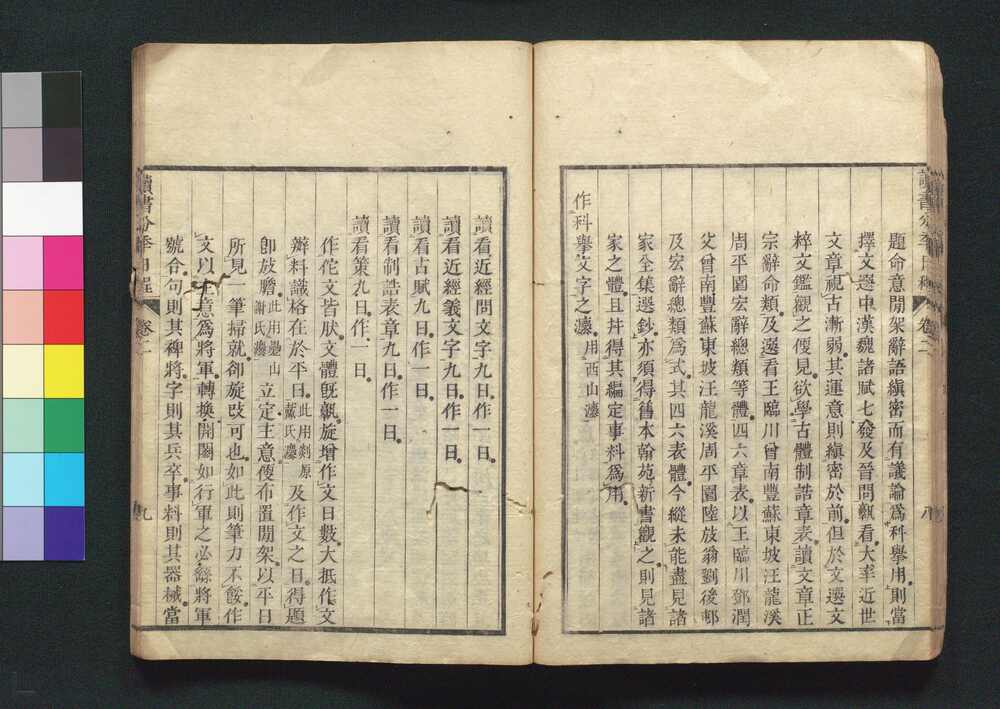 題命意間架辭語縝密而有議論爲科擧用則當
擇文選中漢魏諸賦七發及晉問熟看大率近世
文章視古漸弱其運意則縝密於前但於文選文
粹文鑑觀之便見欲學古體制誥章表讀文章正
宗辭命類及選看王臨川曾南豐蘇東坡汪龍溪
周平園宏辭總類等體四六章表以王臨川鄧潤
父曾南豐蘇東坡汪龍溪周平園陸放翁劉後邨
及宏辭總類爲式其四六表體今縱未能盡見諸
家全集選鈔亦須得舊本翰苑新書觀之則見諸
家之體且幷得其編定事料爲用
作科擧文字之灋用西山灋
讀看近經問文字九日作一日
讀看近經義文字九日作一日
讀看古賦九日作一日
讀看制誥表章九日作一日
讀看策九日作一日
作佗文皆肰文體旣熟旋增作文日數大抵作文
辦料識格在於平日此用剡原戴氏灋及作文之日得題
卽放膽此用疊山謝氏灋立定主意便布置間架以平日
所見一筆掃就卻旋改可也如此則筆力不餒作
文以主意爲將軍轉換開闔如行軍之必繇將軍
號令句則其裨將字則其兵卒事料則其器械當
讀書分年日程
卷二
八
讀書分年日程
卷二
九